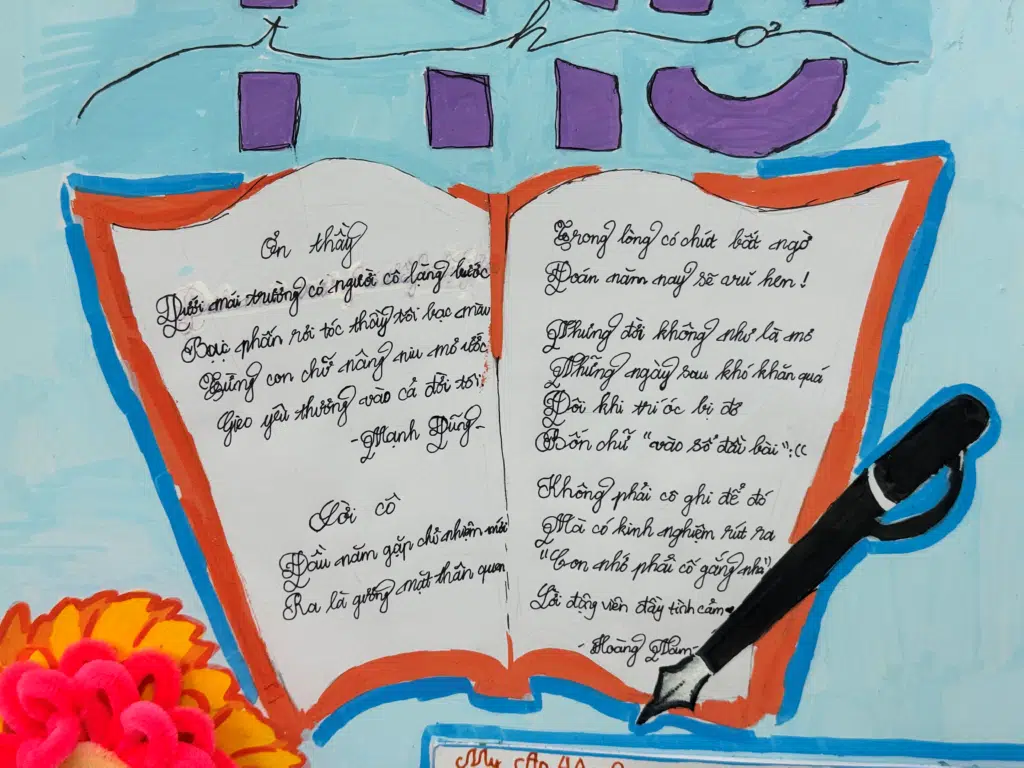 thơ
THƠ
Ơn thầy
Dưới mái trường có người cô lặng bước
Bục phấn rơi tóc thầy tôi bạc màu
Từng con chữ nâng niu mơ ước
Gieo yêu thương vào cả đời tôi.
-Mạnh Dũng-
Lời cô
Đầu năm gặp chủ nhiệm mới
Ra là gương mặt thân quen
Trong lòng có chút bất ngờ
Đoán năm nay sẽ vui hen!
Nhưng đời không như là mơ
Những ngày sau khó khăn quá
Đôi khi trí óc bị đơ
Bốn chữ "vào sổ đầu bài":((
Không phải cô ghi để đó
Mà có kinh nghiệm rút ra
"Con nhớ phải cố gắng nhá"
Lời động viên đầy tình cảm
- Hoàng Nam-